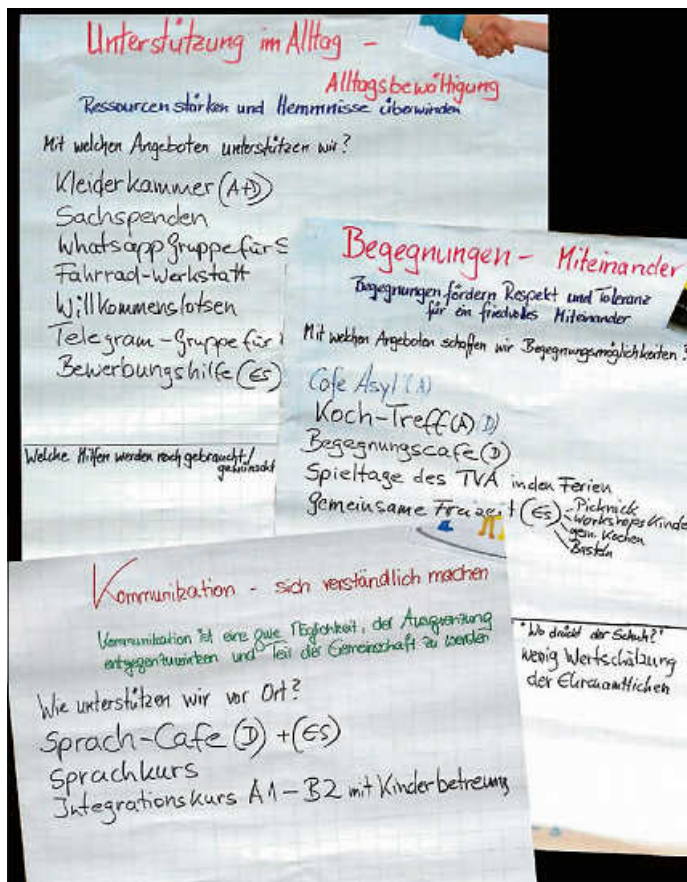 Unterstützung im Alltag -
Alltagsbewältigung
Ressourcen stärken und Hemmnisse überwinden
Mit welchen Angeboten unterstützen wir?
Kleiderkammer (A+D)
Sachspenden
Whatsapp Gruppe für S
Fahrrad-Werkstatt
Willkommenslotsen
Telegram-Gruppe für
Bewerbungshilfe (ES)
Welche Hilfen werden noch gebraucht/
gewünscht
Begegnungen - Miteinander
Begegnungen fördern Respekt und Toleranz
für ein friedvolles Miteinander
Mit welchen Angeboten schaffen wir Begegnungsmöglichkeiten?
Cafe Asyl (A)
Koch-Treff (A) (D)
Begegnungscafe (D)
Spieltage des TVA in den Ferien
gemeinsame Freizeit (ES)
- Picknick
- Workshops Kinder
gem. Kochen
Basteln
"Wo drückt der Schuh?"
wenig Wertschätzung
der Ehrenamtlichen
Kommunikation - sich verständlich machen
Kommunikation ist eine gute Möglichkeit, der Ausgrenzung
entgegenzuwirken und Teil der Gemeinschaft zu werden
Wie unterstützen wir vor Ort?
Sprach-Cafe (D) + (ES)
Sprachkurs
Integrationskurs A1-B2 mit Kinderbetreung